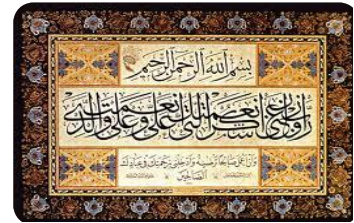 بسم الله الرحمن الرحيم
رب أوزعني أن أشكر نعمتك التي أنعمت علي وعلى والدي
وأن أعمل صالحا ترضيه وأدخلني برحمتك في عبادك
الصالحين